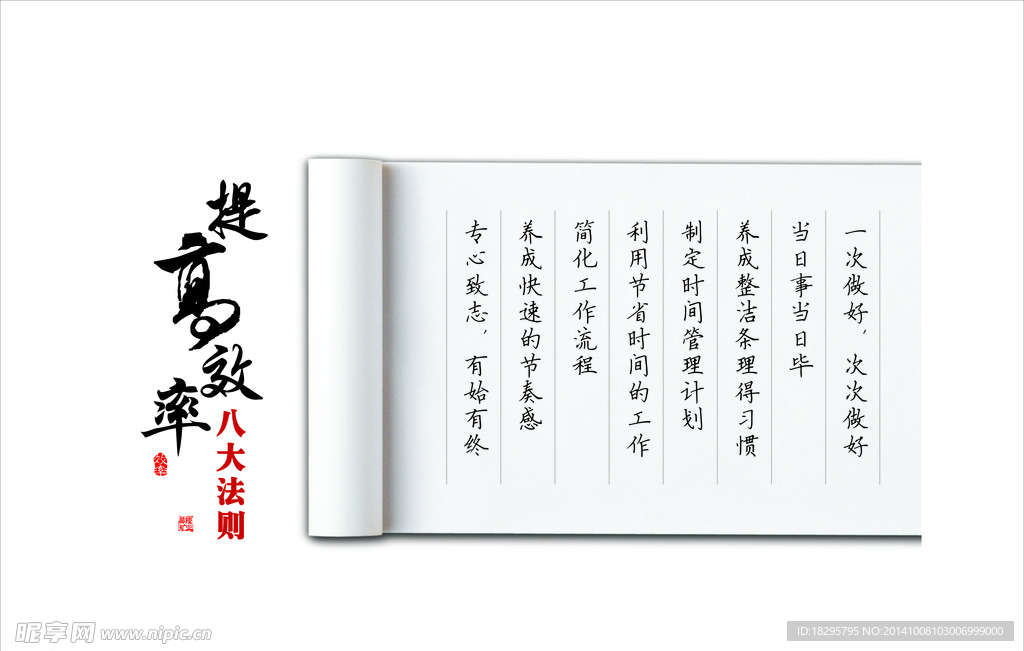 提高效率
八大法则
效率
一次做好，次次做好
当日事当日毕
养成整洁条理得习惯
制定时间管理计划
利用节省时间的工作
简化工作流程
养成快速的节奏感
专心致志，有始有终
昵享网 www.nipic.cn
ID:18295795 NO:20141008103006999000